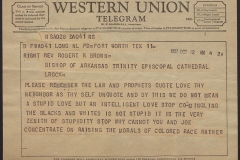 WESTERN UNION
TELEGRAM
LONG NL PD=FORT WORTH TEX 11=
RIGHT REV ROBERT R BROWN=
BISHOP OF ARKANSAS TRINITY EPISCOPAL CATHEDRAL
LROCK=
PLEASE REMEMBER THE LAW AND PROPHETS QUOTE LOVE THY
NEIGHBOR AS THY SELF UNQUOTE AND BY THIS WE DO NOT MEAN
A STUPID LOVE BUT AN INTELLIGENT LOVE STOP CO-MINGLING
THE BLACKS AND WHITES IS NOT STUPID IT IS THE VERY
ZENITH OF STUPIDITY STOP WHY CANNOT YOU AND JOE
CONCENTRATE ON RAISING THE MORALS OF COLORED RACE RATHER